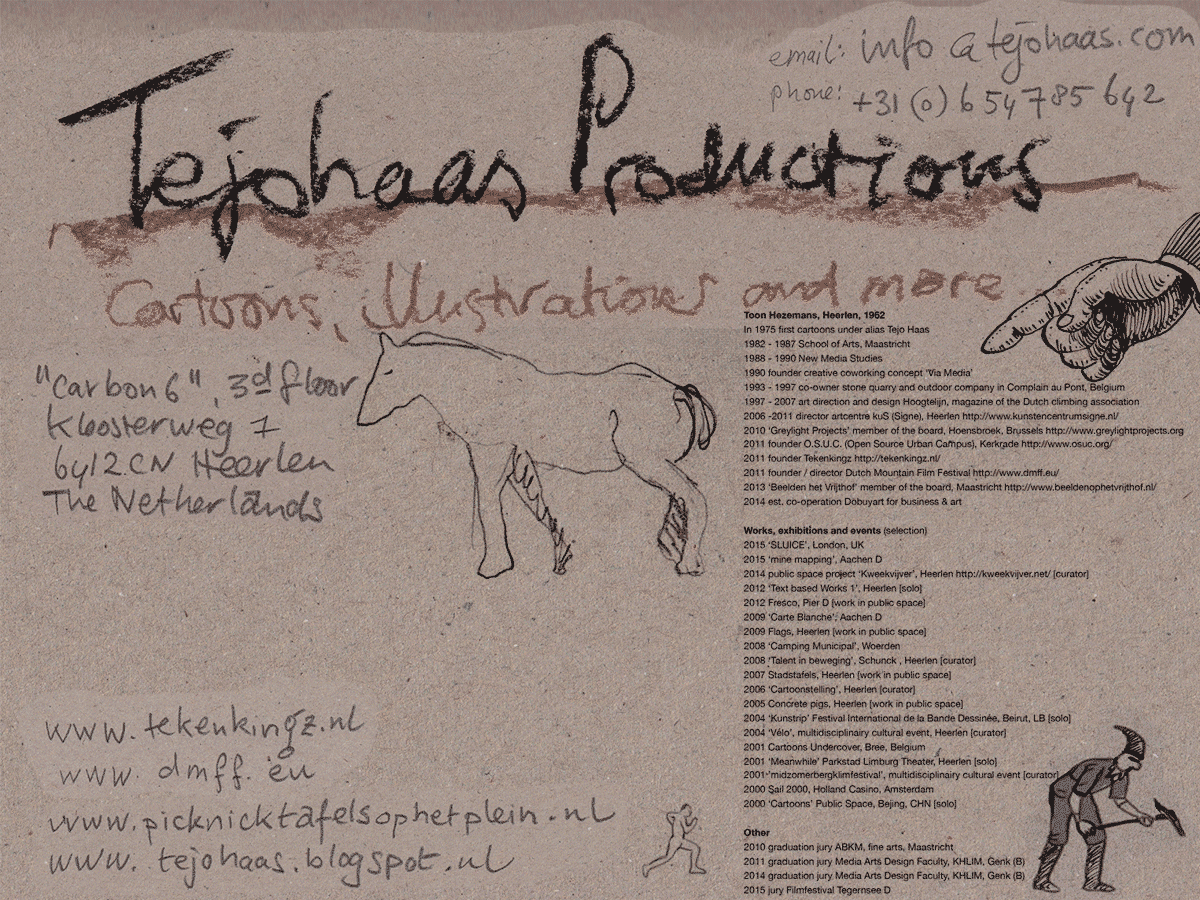 email: info @ tejohaas.com
phone: +31 (0) 6 54 785 642
Tejohaas Productions
Cartoons, illustrations and more...
"Carbon6", 3d floor
Kloosterweg 1
6412 CN Heerlen
The Netherlands
www.tekenkingz.nl
www.dmff.eu
www.picknicktafelsophetplein.nl
www.tejohaas.blogspot.nl
Toon Hezemans, Heerlen, 1962
In 1975 first cartoons under alias Tejo Haas
1982 - 1987 School of Arts, Maastricht
1988 - 1990 New Media Studies
1990 founder creative coworking concept 'Via Media'
1993 - 1997 co-owner stone quarry and outdoor company in Complain au Pont, Belgium
1997 - 2007 art direction and design Hoogtelijn, magazine of the Dutch climbing association
2006 -2011 director artcentre kuS (Signe), Heerlen http://www.kunstencentrumsigne.nl/
2010 'Greylight Projects' member of the board, Hoensbroek, Brussels http://www.greylightprojects.org
2011 founder O.S.U.C. (Open Source Urban Campus), Kerkrade http://www.osuc.org/
2011 founder Tekenkingz http://tekenkingz.nl/
2011 founder / director Dutch Mountain Film Festival http://www.dmff.eu/
2013 'Beelden het Vrijthof' member of the board, Maastricht http://www.beeldenophetvrijthof.nl/
2014 est. co-operation Döbuyart for business & art
Works, exhibitions and events (selection)
2015 'SLUICE', London, UK
2015 'mine mapping', Aachen D
2014 public space project 'Kweekvijver', Heerlen http://kweekvijver.net/ [curator]
2012 'Text based Works 1', Heerlen [solo]
2012 Fresco, Pier D [work in public space]
2009 'Carte Blanche', Aachen D
2009 Flags, Heerlen [work in public space]
2008 'Camping Municipal', Woerden
2008 'Talent in beweging', Schunck , Heerlen [curator]
2007 Stadstafels, Heerlen [work in public space]
2006 'Cartoonstelling', Heerlen [curator]
2005 Concrete pigs, Heerlen [work in public space]
2004 'Kunstrip' Festival International de la Bande Dessinée, Beirut, LB [solo]
2004 'Vélo', multidisciplinary cultural event, Heerlen [curator]
2001 Cartoons Undercover, Bree, Belgium
2001 'Meanwhile' Parkstad Limburg Theater, Heerlen [solo]
2001 'midzomerbergklimfestival', multidisciplinairy cultural event [curator]
2000 Sail 2000, Holland Casino, Amsterdam
2000 'Cartoons' Public Space, Bejing, CHN [solo]
Other
2010 graduation jury ABKM, fine arts, Maastricht
2011 graduation jury Media Arts Design Faculty, KHLIM, Genk (B)
2014 graduation jury Media Arts Design Faculty, KHLIM, Genk (B)
2015 jury Filmfestival Tegernsee D